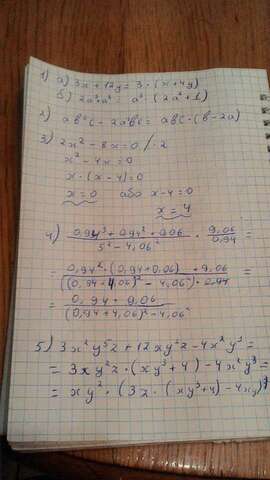 1) а) 3x + 12y = 3 · (x + 4y)
б) 2a⁵ + a³ = a³ (2a² + 1)
2) ab²c - 2a²bc = abc · (b - 2a)
3) 2x² - 8x = 0 / : 2
x² - 4x = 0
x · (x - 4) = 0
x = 0 або x - 4 = 0
x = 4
4) (0,94³ + 0,94² · 0,06) / (5² - 4,06²) · 9,06 / 0,94 =
= (0,94² · (0,94 + 0,06) · 9,06) / ((0,94 + 4,06)² - 4,06²) · 0,94 =
= (0,94 · 9,06) / ((0,94 + 4,06)² - 4,06²)
5) 3x²y⁵z + 12xy²z - 4x²y³ =
= 3xy²z · (xy³ + 4) - 4x²y³ =
= xy² · (3z · (xy³ + 4) - 4xy)